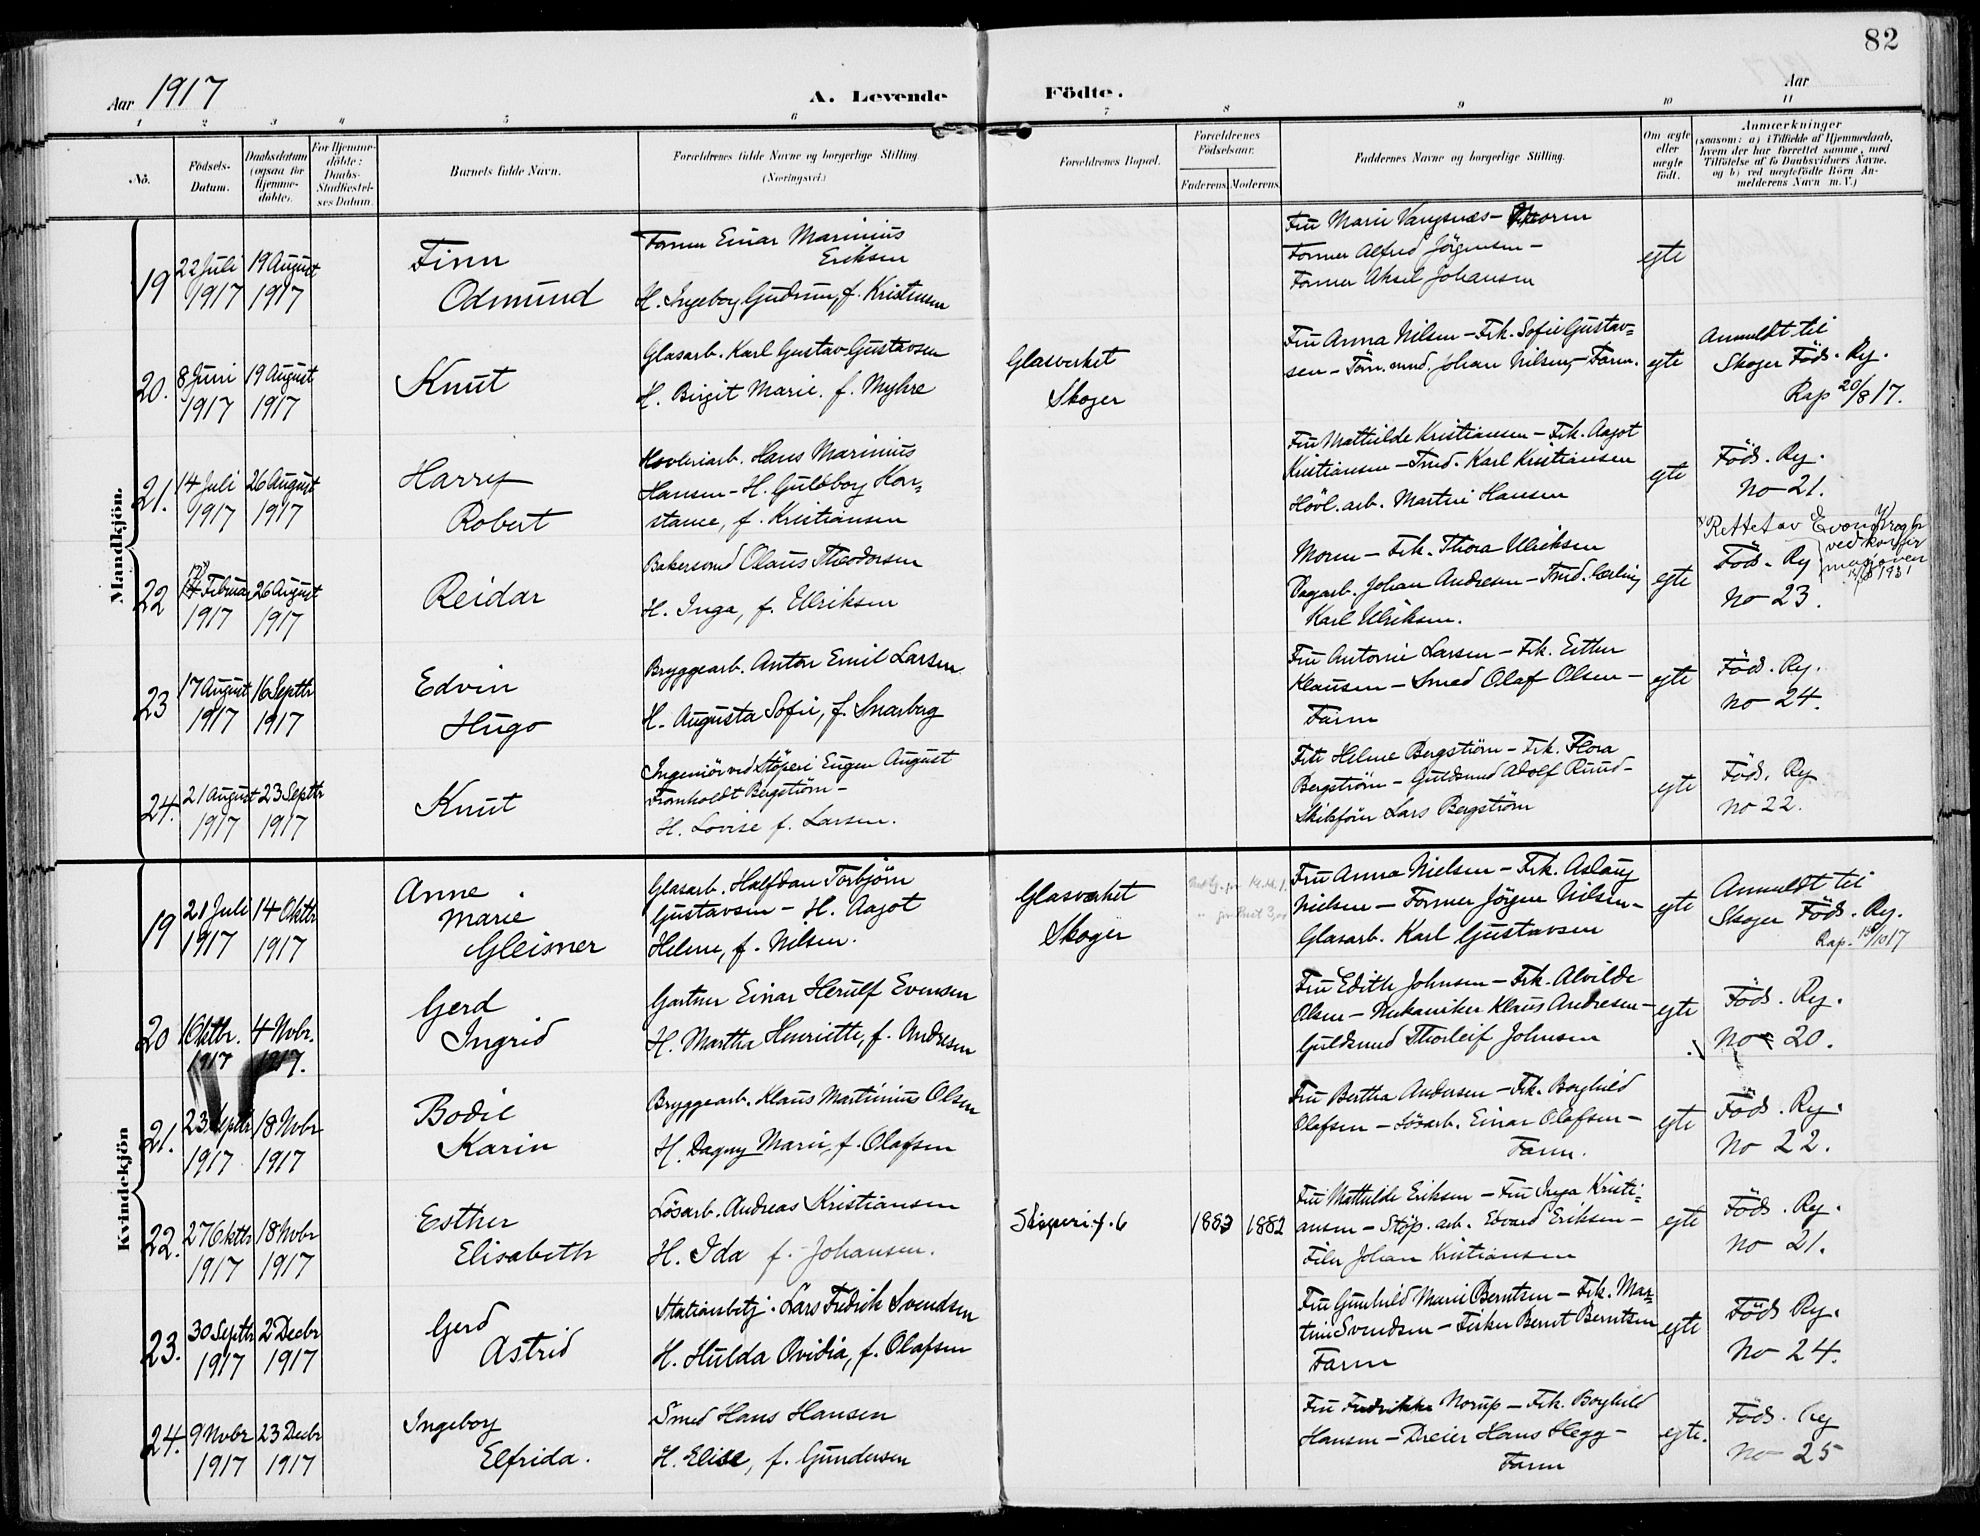 82
Aar 1917
A. Levende Födte.
Aar
1 2 3 4 5 6 7 8 9 10 11
No.
Födsels-Datum.
Daabsdatum (ogsaa for Hjemme-döbte).
For Hjemme-döbte: Daabs-Stadfæstel-ses Datum.
Barnets fulde Navn.
Forældrenes fulde Navne og borgerlige Stilling. (Næringsvei.)
Forældrenes Bopæl.
Forældrenes Födselsaar.
Faderens. Moderens.
Faddernes Navne og borgerlige Stilling.
Om ægte eller uægte födt.
Anmærkninger (saasom: a) i Tilfælde af Hjemmedaab, hvem der har forrettet samme, med Tilföielse af to Daabsvidners Navne. og b) ved uægtefödte Börn An-melderens Navn m. V.)
Mandkjön.
19 22 Juli 1917 19 August 1917
Finn Odmund
Former Einar Marinius Eriksen
H. Ingeborg Gudrun, f. Kristensen
Fru Marie Vangsnes - Moren
Former Alfred Jörgensen -
Former Aksel Johansen
egte
20. 8 Juni 1917 19 August 1917
Knut
Glasarb. Karl Gustav Gustavsen
H. Birgit Marie. f. Myhre
Glasverket Skoger
Fru Anna Nilsen - Frk. Sofie Gustav=
sen - Törn. smed. Johan Nilsen, - Faren.
egte
Anmeldt til
Skoger Föds. Rg.
Rap 20/8 17.
21. 14 Juli 1917 26 August 1917
Harry Robert
Hovleriarb. Hans Marinius
Hansen - H. Guldborg Kon=
stance, f. Kristiansen
Fru Mathilde Kristiansen - Frk. Aagot
Kristiansen - Smed. Karl Kristiansen
Hövl. arb. Martin Hansen
egte
Föds. Rg.
No 21.
22 Februar 1917 26 August 1917
Reidar
Bakersvend Olaus Theodorsen
H. Inga, f. Ulriksen
Moren - Frk. Thora Ulriksen
Dagarb. Johan Andresen - Smed. lærling
Karl Ulriksen.
egte
Rettet av
ved
Föds. Rg
No 23.
1931
23 17 August 1917 16 Septbr 1917
Edvin Hugo
Bryggearb. Anton Emil Larsen
H. Augusta Sofie, f. Snarberg
Fru Antonie Larsen - Frk. Esther
Klausen - Smed Olaf Olsen -
Faren
egte
Föds. Rg.
No 24.
24. 21 August 1917 23 Septbr 1917
Knut
Ingeniör ved Stöperi Eugen August
Fromholdt Bergström -
H. Lovise f. Larsen.
Frk Helene Bergström - Frk. Flora
Bergström - Guldsmed Adolf Ruud -
Skibsförer Lars Bergström
egte
Föds. Rg
No 22.
Kvindekjön
19 21 Juli 1917 14 Oktbr 1917
Anne Marie Gleisner
Glasarb. Halfdan Torbjörn
Gustavsen - H. Aagot
Helene, f. Nilsen.
Glasverket Skoger
Fru Anna Nielsen - Frk. Aslaug
Nielsen - Former Jörgen Nilsen -
Glasarb. Karl Gustavsen
egte
Anmeldt til
Skoger Föds. Rg.
Rap. 15/10 17
20 1 Oktbr. 1917 4 Novbr. 1917.
Gerd Ingrid
Gartner Einar Herulf Evensen
H. Martha Henriette, f. Andresen
Fru Edith Johnsen - Frk. Alvilde
Olsen - Mekaniker Klaus Andresen -
Guldsmed Thorleif Johnsen
egte
Föds. Rg.
No 20.
21. 23 Septbr 1917 18 Novbr 1917
Bodil Karin
Bryggearb. Klaus Martinius Olsen
H. Dagny Marie, f. Olafsen
Fru Bertha Andersen - Frk. Borghild
Olafsen - Lösarb. Einar Olafsen -
Faren.
egte
Föds. Rg.
No 22.
22. 27 Oktbr 1917 18 Novbr 1917
Esther Elisabeth
Lösarb. Andreas Kristiansen
H. Ida f. Johansen.
1883 1882
Fru Mathilde Eriksen - Fru Inga Kristi=
ansen - Stöp. arb. Edvard Eriksen -
Filer Johan Kristiansen
egte
Föds. Rg.
No 21.
23. 30 Septbr 1917 2 Decbr 1917
Gerd Astrid
Stationsbetj. Lars Fredrik Svendsen
H. Hulda Ovidia, f. Olafsen
Fru Gunhild Marie Berntsen - Frk. Mar=
tine Svendsen - Fisker Bernt Berntsen
Faren
egte
Föds Rg.
No 24.
24. 9 Novbr 1917 23 Decbr 1917
Ingeborg Elfrida.
Smed Hans Hansen
H. Elise, f. Gundersen
Fru Fredrikke Norup - Frk. Borghild
Hansen - Dreier Hans Hegg -
Faren
egte.
Föds. Rg
No 25